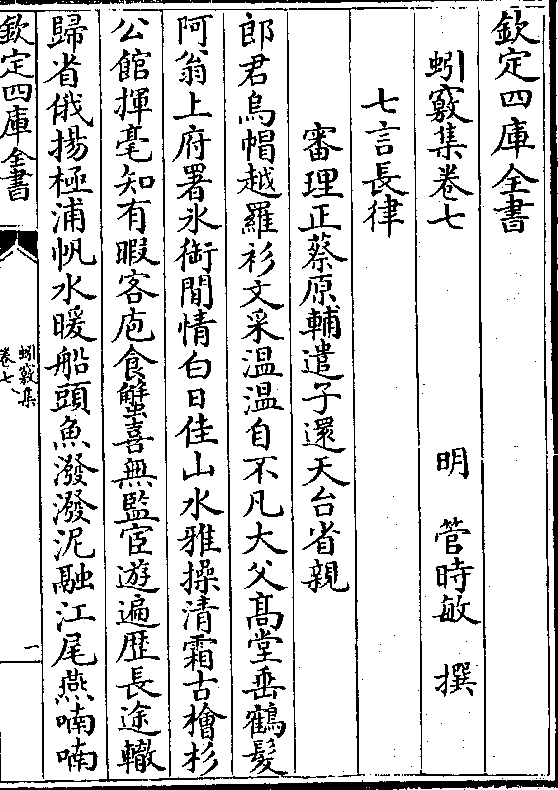 欽定四庫全書
蚓竅集卷七
明 管時敏 撰
七言長律
審理正蔡原輔遣子還天台省親
郎君烏帽越羅衫文采溫溫自不凡大父髙堂垂鶴髮
阿翁上府署氷銜閒情白日佳山水雅操清霜古檜杉
公館揮毫知有暇客庖食蟹喜無監宦遊遍歴長途轍
歸省俄揚極浦帆水暖船頭魚潑潑泥融江尾燕喃喃
欽定四庫全書
蚓竅集
卷七
一